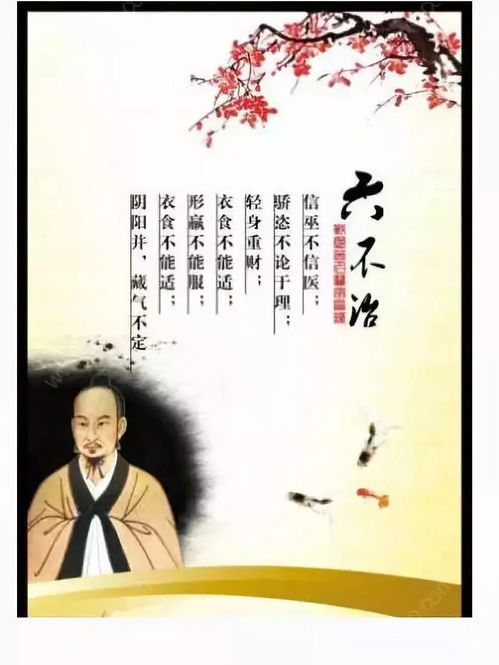 六不治
信巫不信医；
骄恣不论于理；
轻身重财；
衣食不能适；
形羸不能服；
衣食不能适；
阴阳并，藏气不定